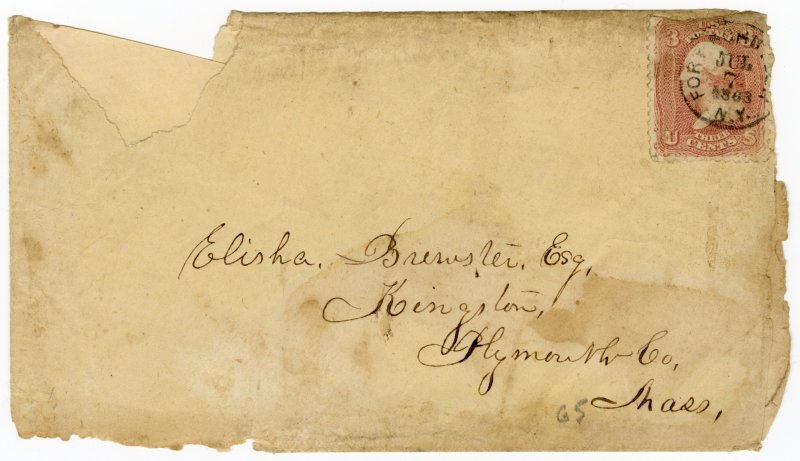 3
U S
THREE
CENTS
FORT
JUL
7
1863
N.Y.
Elisha. Brewster, Esq,
Kingston,
Plymouth Co,
Mass,
65